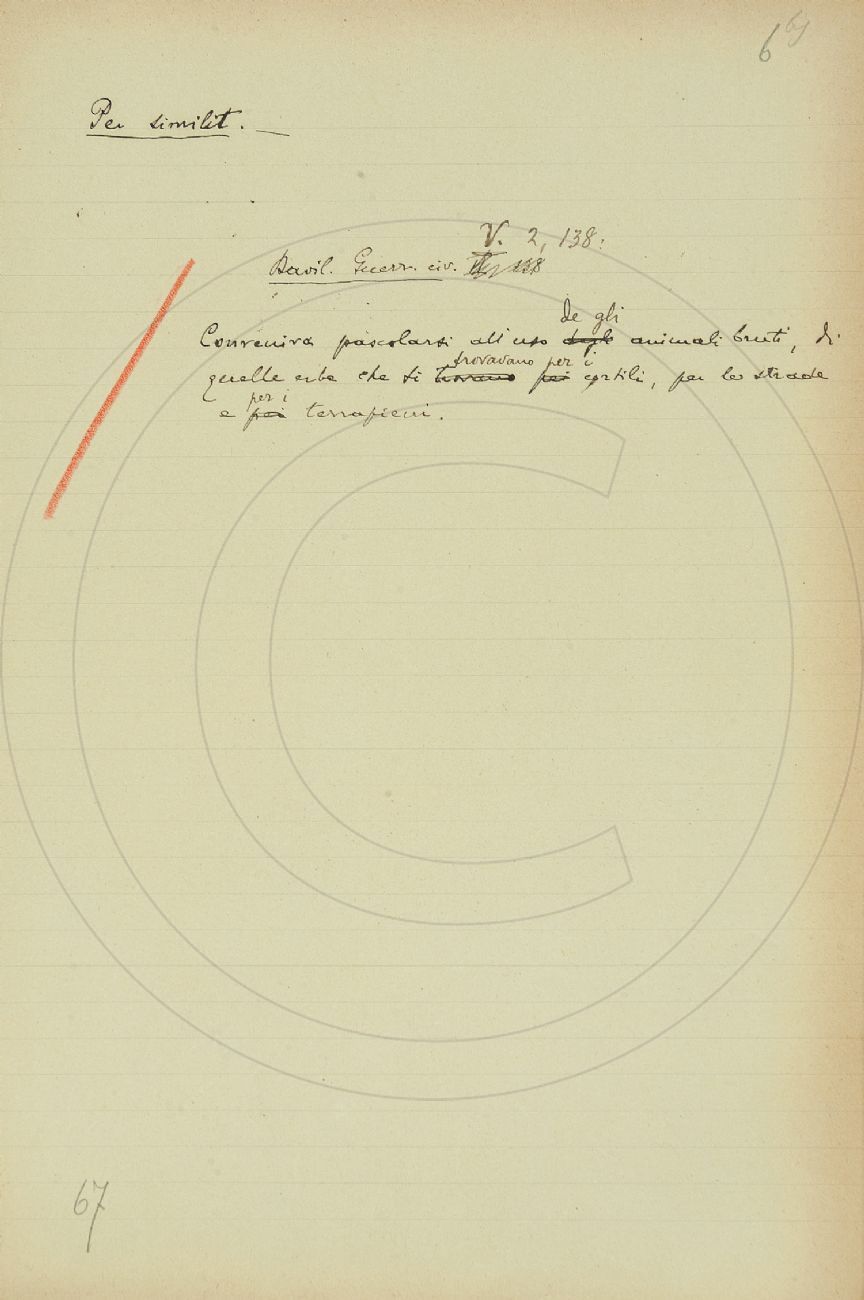 6 bis
Per similit. —
V. 2, 138:
Davil. Guerr. civ.
de gli
Conveniva pascolarsi all'uso degli animali bruti, di
trovavano per i
quelle erbe che si trovano pei cortili, per le strade
per i
e pei terrapieni.
67